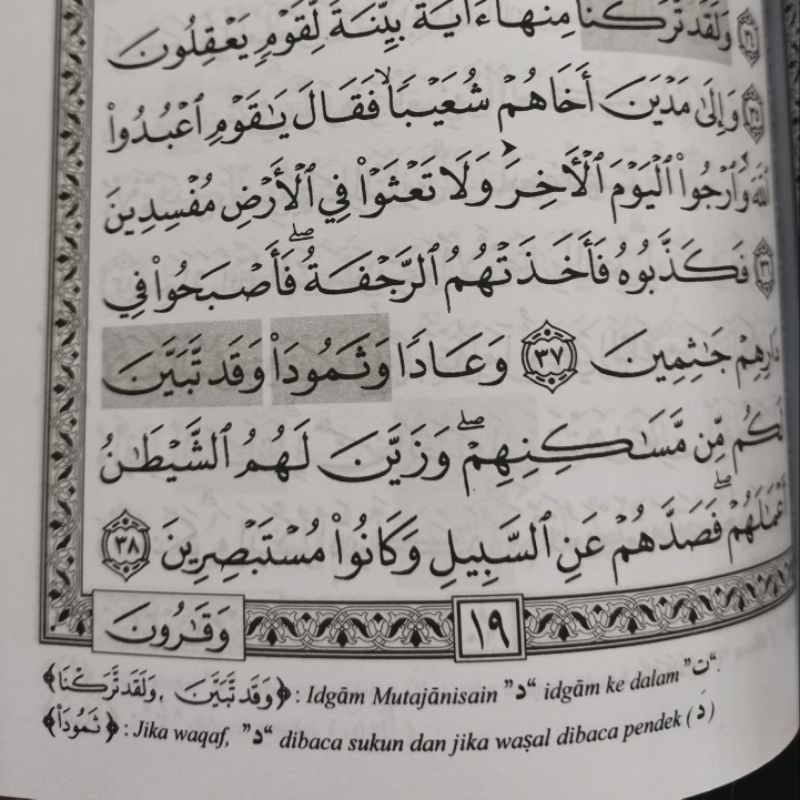 وَلَقَد تَّرَكْنَا مِنْهَآ ءَايَةًۢ بَيِّنَةً لِّقَوْمٍ يَعْقِلُونَ
۝٣٥ وَإِلَىٰ مَدْيَنَ أَخَاهُمْ شُعَيْبًا فَقَالَ يَٰقَوْمِ ٱعْبُدُوا۟
ٱللَّهَ وَٱرْجُوا۟ ٱلْيَوْمَ ٱلْأَخِرَ وَلَا تَعْثَوْا۟ فِي ٱلْأَرْضِ مُفْسِدِينَ
۝٣٦ فَكَذَّبُوهُ فَأَخَذَتْهُمُ ٱلرَّجْفَةُ ۖ فَأَصْبَحُوا۟ فِي
دَارِهِمْ جَٰثِمِينَ ۝٣٧ وَعَادًا وَثَمُودَا۟ وَقَد تَّبَيَّنَ
لَكُم مِّن مَّسَٰكِنِهِمْ ۖ وَزَيَّنَ لَهُمُ ٱلشَّيْطَٰنُ
أَعْمَٰلَهُمْ ۖ فَصَدَّهُمْ عَنِ ٱلسَّبِيلِ وَكَانُوا۟ مُسْتَبْصِرِينَ ۝٣٨
١٩ وَقَٰرُونَ
﴿وَقَد تَّبَيَّنَ , وَلَقَد تَّرَكْنَا﴾ : Idgām Mutajānisain "د" idgām ke dalam "ت".
﴿ثَمُودَا۟﴾ : Jika waqaf, "د" dibaca sukun dan jika waṣal dibaca pendek (دَ)